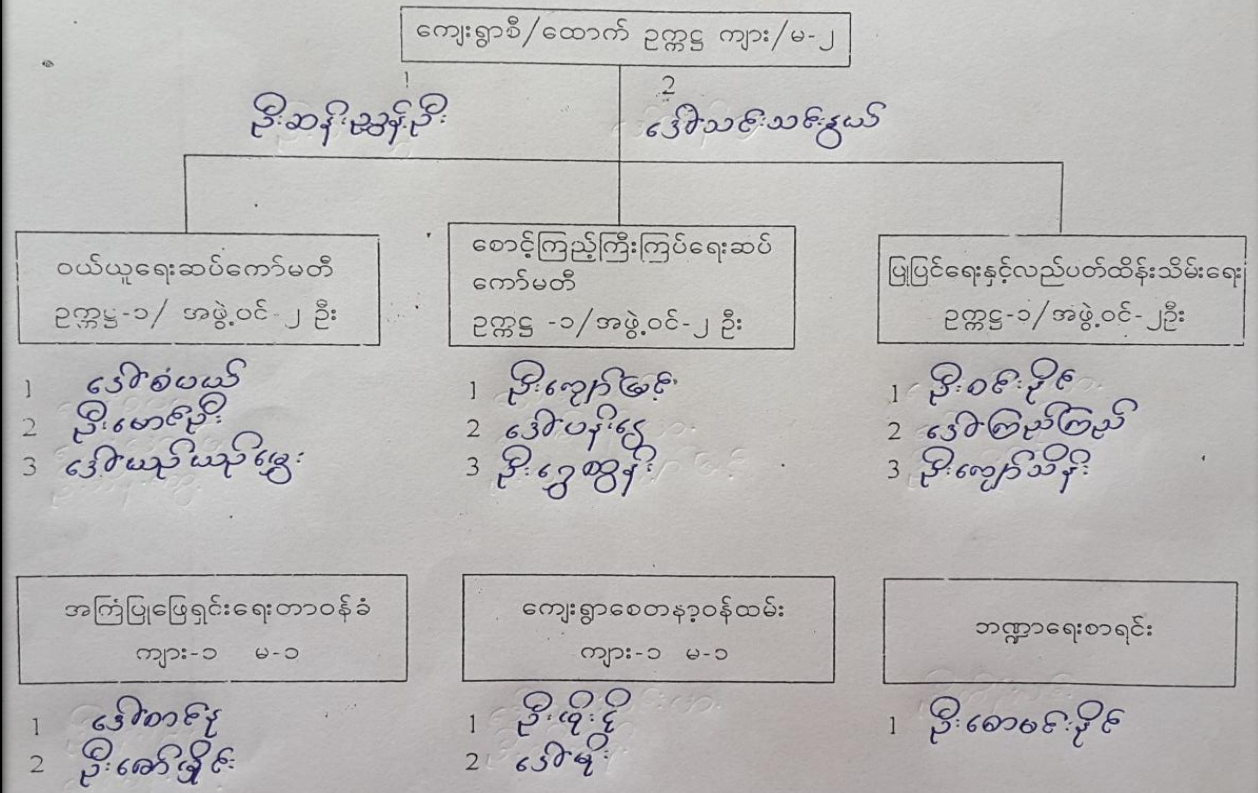 ကျေးရွာစီ/ထောက် ဥက္ကဋ္ဌ ကျား/မ-၂
1
2
ဦးဆန်းညွန့်ဦး
ဒေါ်သင်းသင်းနွယ်
ဝယ်ယူရေးဆပ်ကော်မတီ
ဥက္ကဋ္ဌ-၁/ အဖွဲ့ဝင်-၂ ဦး
1 ဒေါ်စံပယ်
2 ဦးမောင်ဦး
3 ဒေါ်ယဉ်ယဉ်မွှေး
စောင့်ကြည့်ကြီးကြပ်ရေးဆပ်
ကော်မတီ
ဥက္ကဋ္ဌ -၁/အဖွဲ့ဝင်-၂ ဦး
1 ဦးကျော်မြင့်
2 ဒေါ်ပန်းနွေ
3 ဦးရွှေထွန်း
ပြုပြင်ရေးနှင့်လည်ပတ်ထိန်းသိမ်းရေး
ဥက္ကဋ္ဌ-၁/အဖွဲ့ဝင်-၂ဦး
1 ဦးဝင်းနိုင်
2 ဒေါ်ကြည်ကြည်
3 ဦးကျော်သိန်း
အကြံပြုဖြေရှင်းရေးတာဝန်ခံ
ကျား-၁ မ-၁
1 ဒေါ်တင်နု
2 ဦးဇော်မှိုင်း
ကျေးရွာစေတနာ့ဝန်ထမ်း
ကျား-၁ မ-၁
1 ဦးဖိုးငို
2 ဒေါ်မိုး
ဘဏ္ဍာရေးစာရင်း
1 ဦးစောမင်းနိုင်